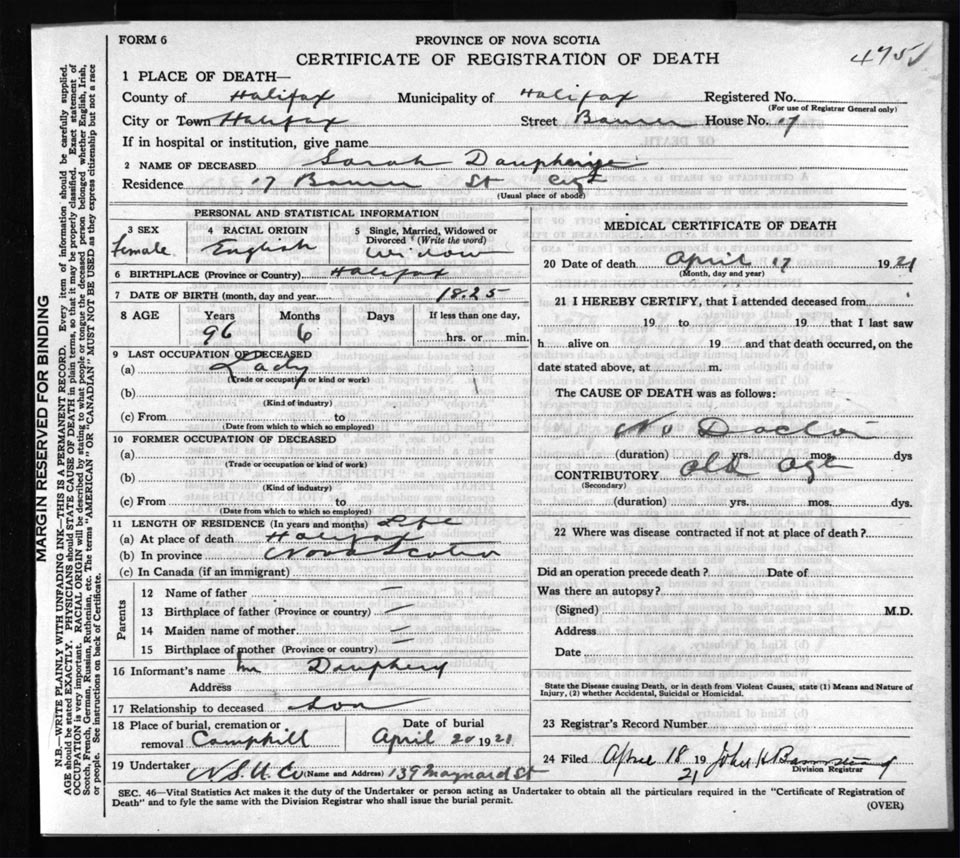 FORM 6
PROVINCE OF NOVA SCOTIA
CERTIFICATE OF REGISTRATION OF DEATH
475
1 PLACE OF DEATH—
County of Halifax Municipality of Halifax Registered No.
(For use of Registrar General only)
City or Town Halifax Street Bauer House No. 17
If in hospital or institution, give name
2 NAME OF DECEASED Sarah
Residence 17 Bauer St City
(Usual place of abode)
PERSONAL AND STATISTICAL INFORMATION
3 SEX Female
4 RACIAL ORIGIN English
5 Single, Married, Widowed or Divorced (Write the word) Widow
6 BIRTHPLACE (Province or Country) Halifax
7 DATE OF BIRTH (month, day and year) 1825
8 AGE Years Months Days If less than one day,
96 6 hrs. or min.
9 LAST OCCUPATION OF DECEASED
(a) Lady
(Trade or occupation or kind of work)
(b)
(Kind of industry)
(c) From to
(Date from which to which so employed)
10 FORMER OCCUPATION OF DECEASED
(a)
(Trade or occupation of kind of work)
(b)
(Kind of industry)
(c) From to
(Date from which to which so employed)
11 LENGTH OF RESIDENCE (In years and months) Life
(a) At place of death Halifax
(b) In province Nova Scotia
(c) In Canada (if an immigrant)
Parents
12 Name of father —
13 Birthplace of father (Province or country) —
14 Maiden name of mother —
15 Birthplace of mother (Province or country) —
16 Informant's name
Address
17 Relationship to deceased Son
18 Place of burial, cremation or removal Camphill
Date of burial April 20 1921
19 Undertaker N.S.U.Co (Name and Address) 139 Maynard St
MEDICAL CERTIFICATE OF DEATH
20 Date of death April 17 1921
(Month, day and year)
21 I HEREBY CERTIFY, that I attended deceased from
19 to 19 that I last saw
h alive on 19 and that death occurred, on the
date stated above, at m.
The CAUSE OF DEATH was as follows:
No Doctor
(duration) yrs. mos. dys
CONTRIBUTORY Old Age
(Secondary)
(duration) yrs. mos. dys.
22 Where was disease contracted if not at place of death?
Did an operation precede death? Date of
Was there an autopsy?
(Signed) M.D.
Address
Date
State the Disease causing Death, or in death from Violent Causes, state (1) Means and Nature of
Injury, (2) whether Accidental, Suicidal or Homicidal.
23 Registrar's Record Number
24 Filed April 18 1921 John H
Division Registrar
SEC. 46—Vital Statistics Act makes it the duty of the Undertaker or person acting as Undertaker to obtain all the particulars required in the "Certificate of Registration of
Death" and to fyle the same with the Division Registrar who shall issue the burial permit.
(OVER)
MARGIN RESERVED FOR BINDING
N.B.—WRITE PLAINLY WITH UNFADING INK—THIS IS A PERMANENT RECORD. Every item of information should be carefully supplied.
AGE should be stated EXACTLY. PHYSICIANS should STATE CAUSE OF DEATH in plain terms, so that it may be properly classified. Exact statement of
OCCUPATION is very important. RACIAL ORIGIN will be described by stating to what people or tongue the deceased person belonged whether English, Irish,
Scotch, French, German, Russian, Ruthenian, etc. The terms "AMERICAN" OR "CANADIAN" MUST NOT BE USED as they express citizenship but not a race
or people. See instructions on back of Certificate.